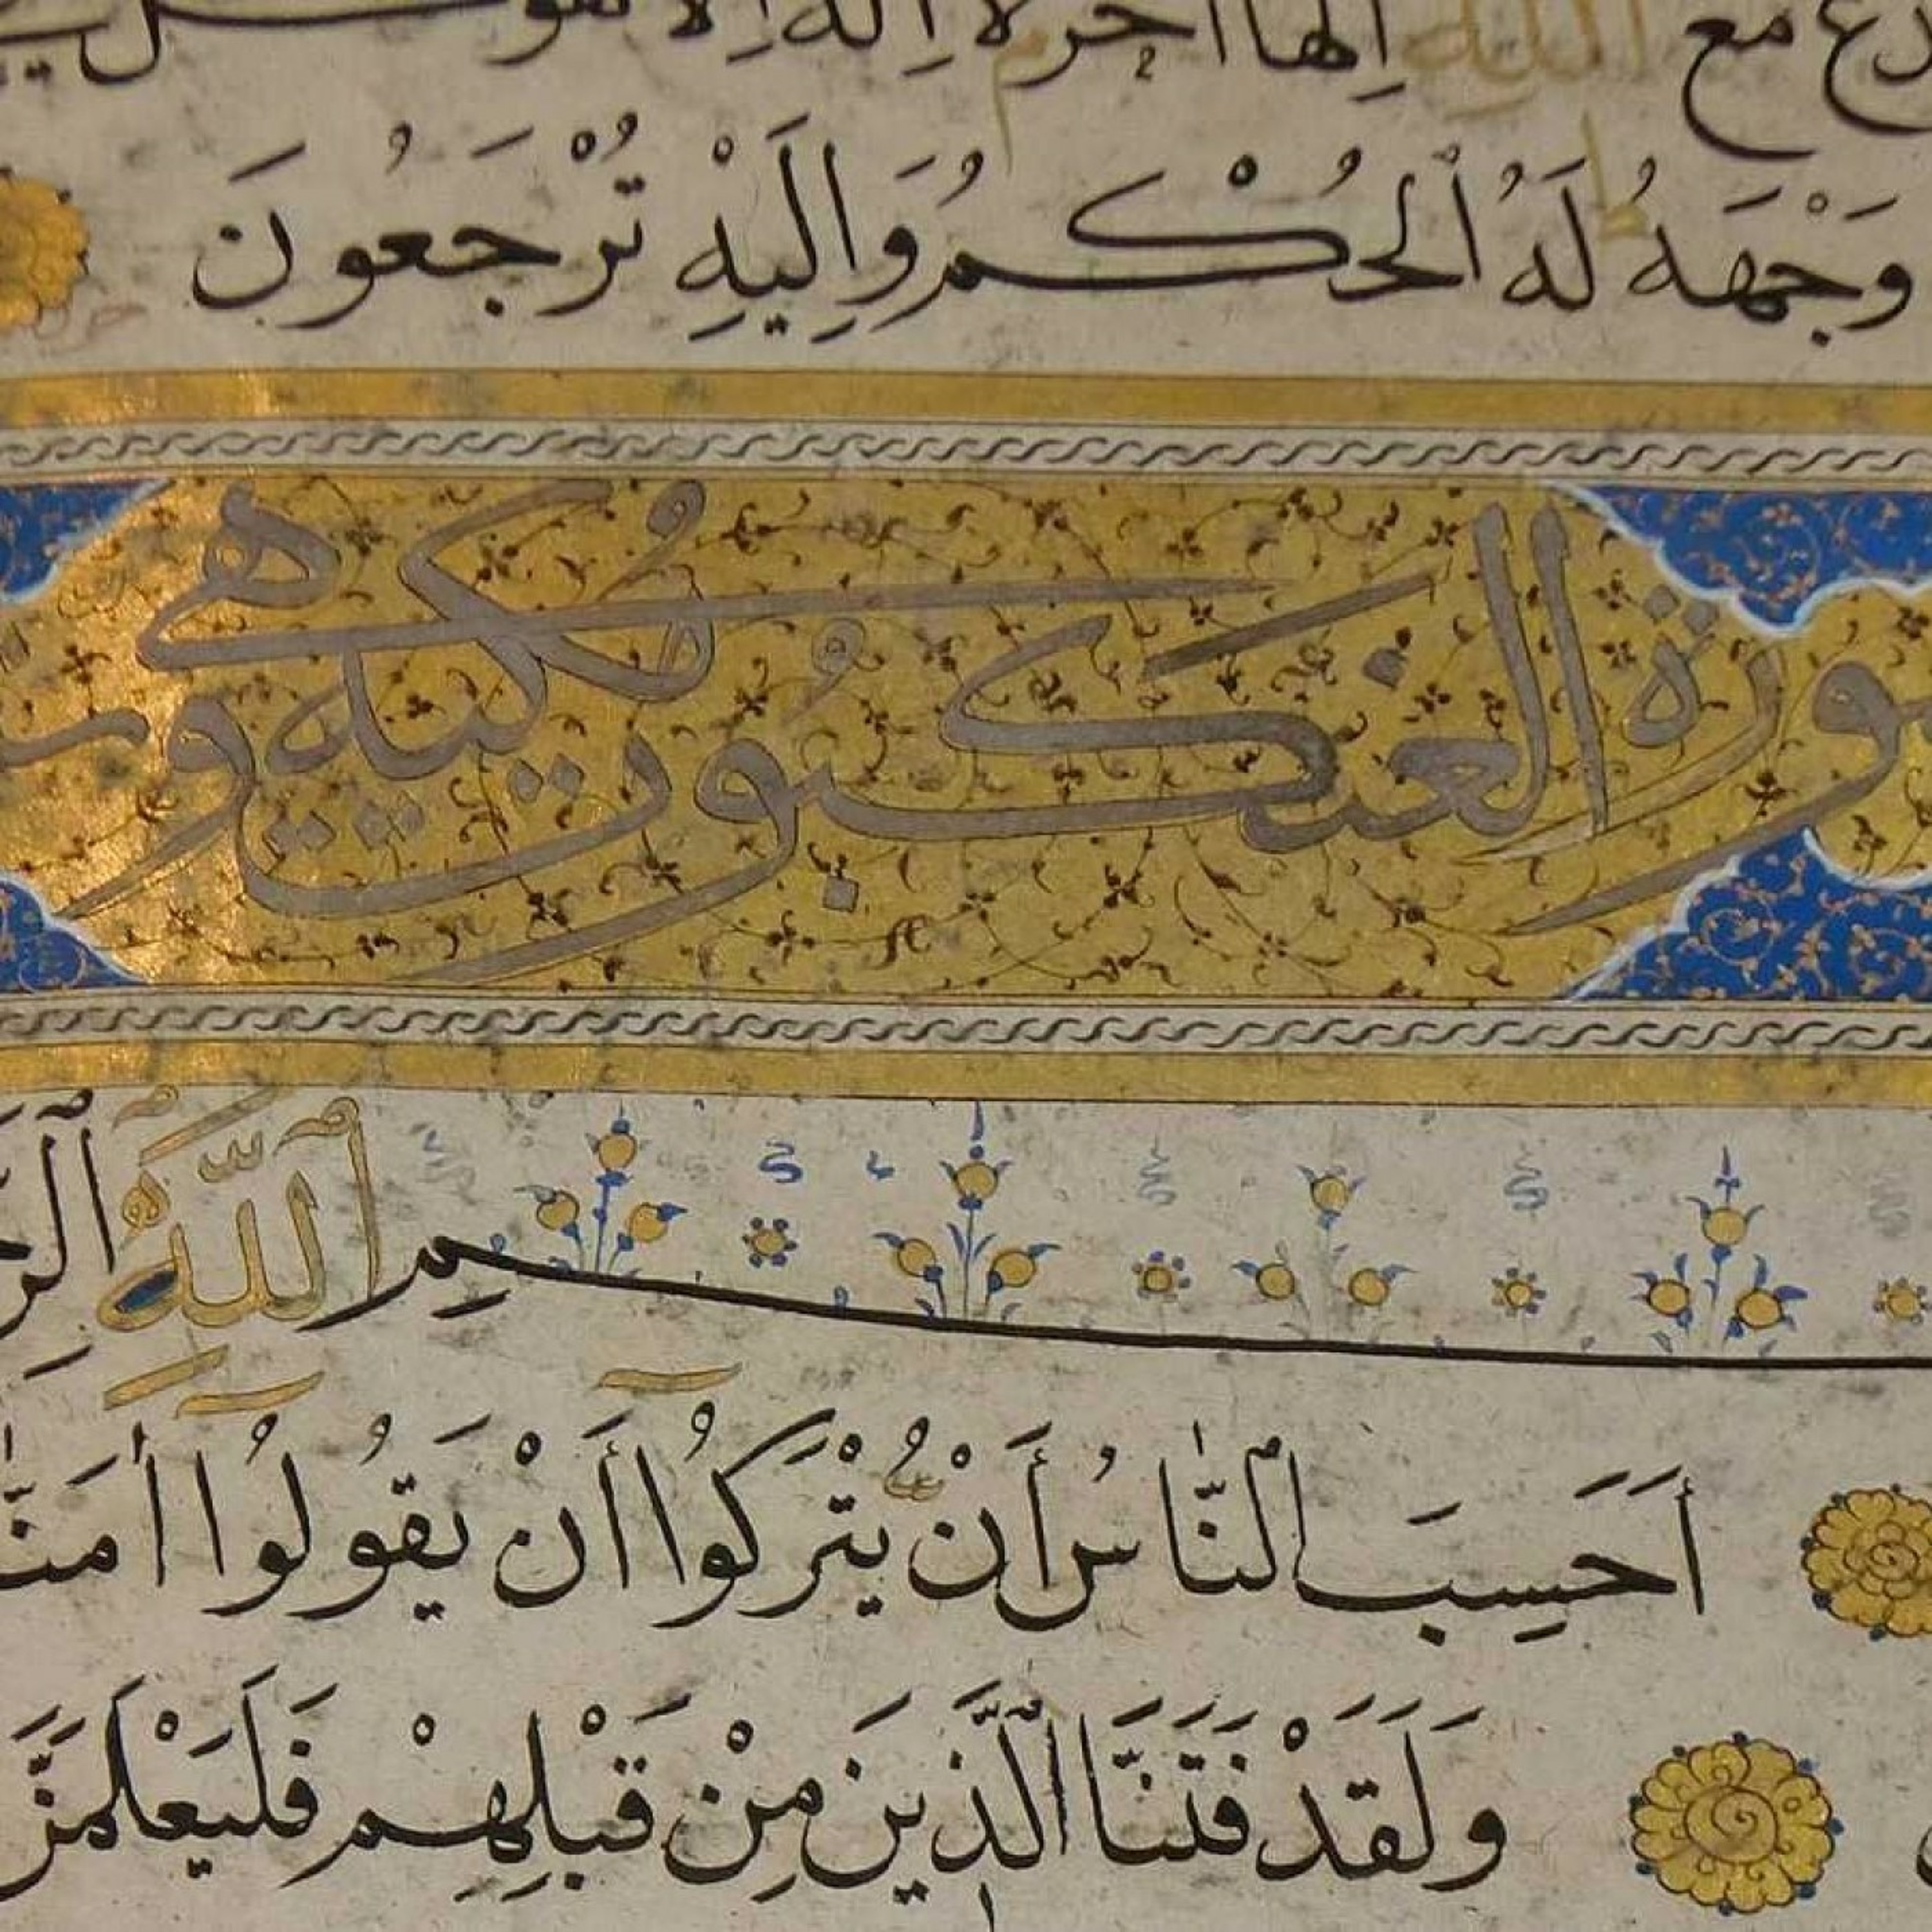 تدع مع الله إلها آخر لا إله إلا هو كل
وَجْهَهُ لَهُ ٱلْحُكْمُ وَإِلَيْهِ تُرْجَعُونَ
سورة العنكبوت مكية وهي
بِسْمِ ٱللَّهِ ٱلرَّحْ
أَحَسِبَ ٱلنَّاسُ أَنْ يُتْرَكُوا أَنْ يَقُولُوا أمَنَّا
وَلَقَدْ فَتَنَّا ٱلَّذِينَ مِنْ قَبْلِهِمْ فَلَيَعْلَمَنَّ